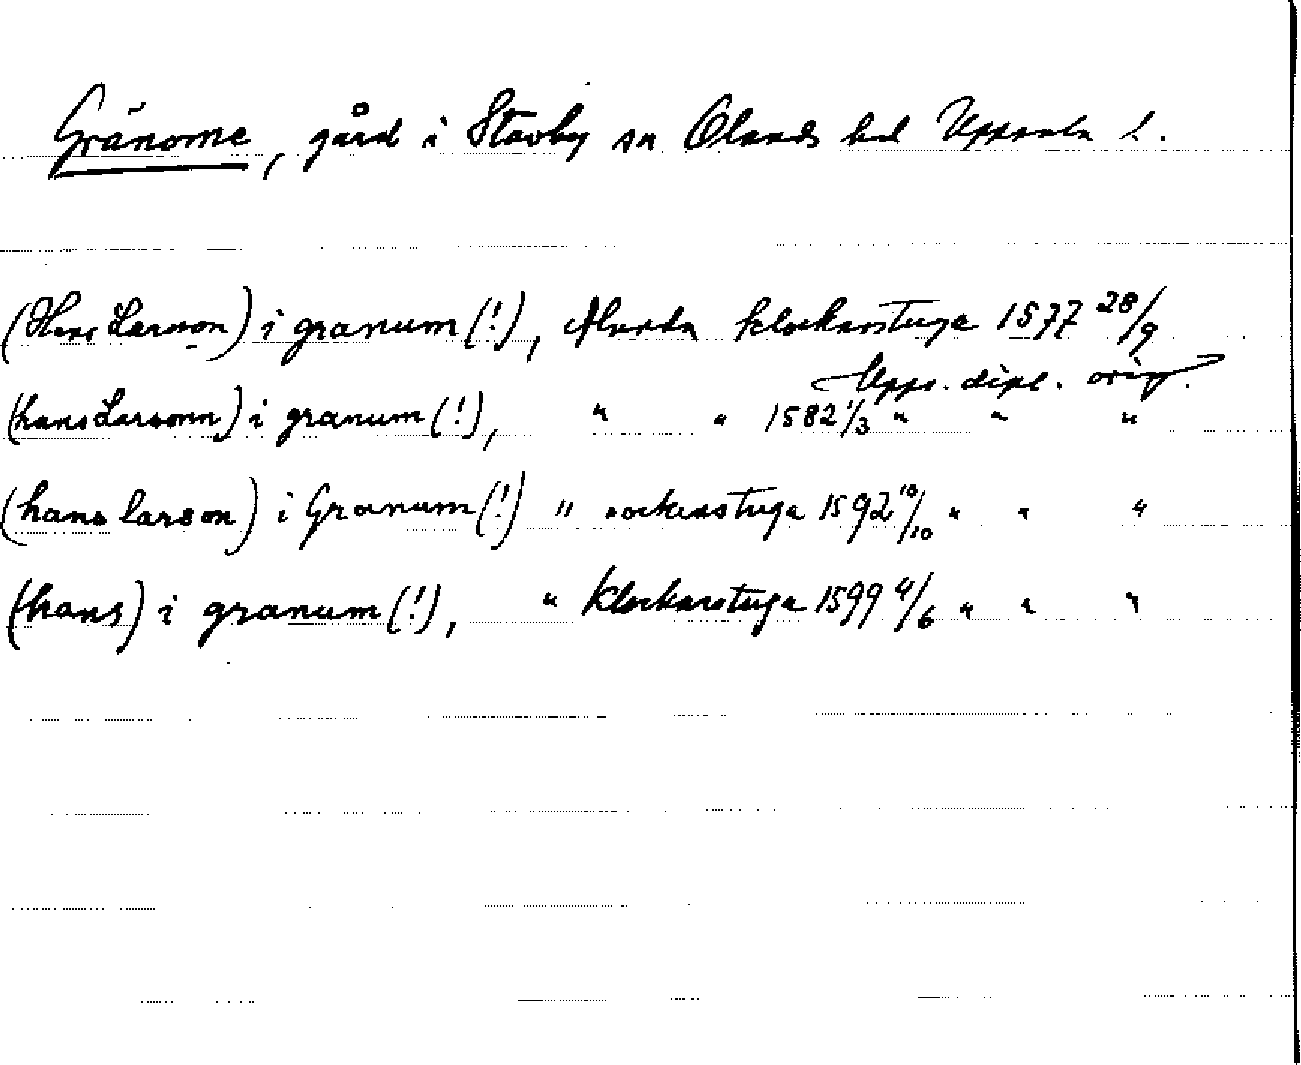 Gränome, gård i Stavby sn Olands hd Uppsala l.
(Hans Larsson) i granum (!), Alunda klockarstuga 1577 28/9
Upps. dipl. orig.
(hans Larsonn) i granum (!), " " 1582 1/3 " " "
(hans larson) i Granum (!) " sockenstuga 1592 10/10 " " "
(hans) i granum (!), " klockarstuga 1599 4/6 " " "